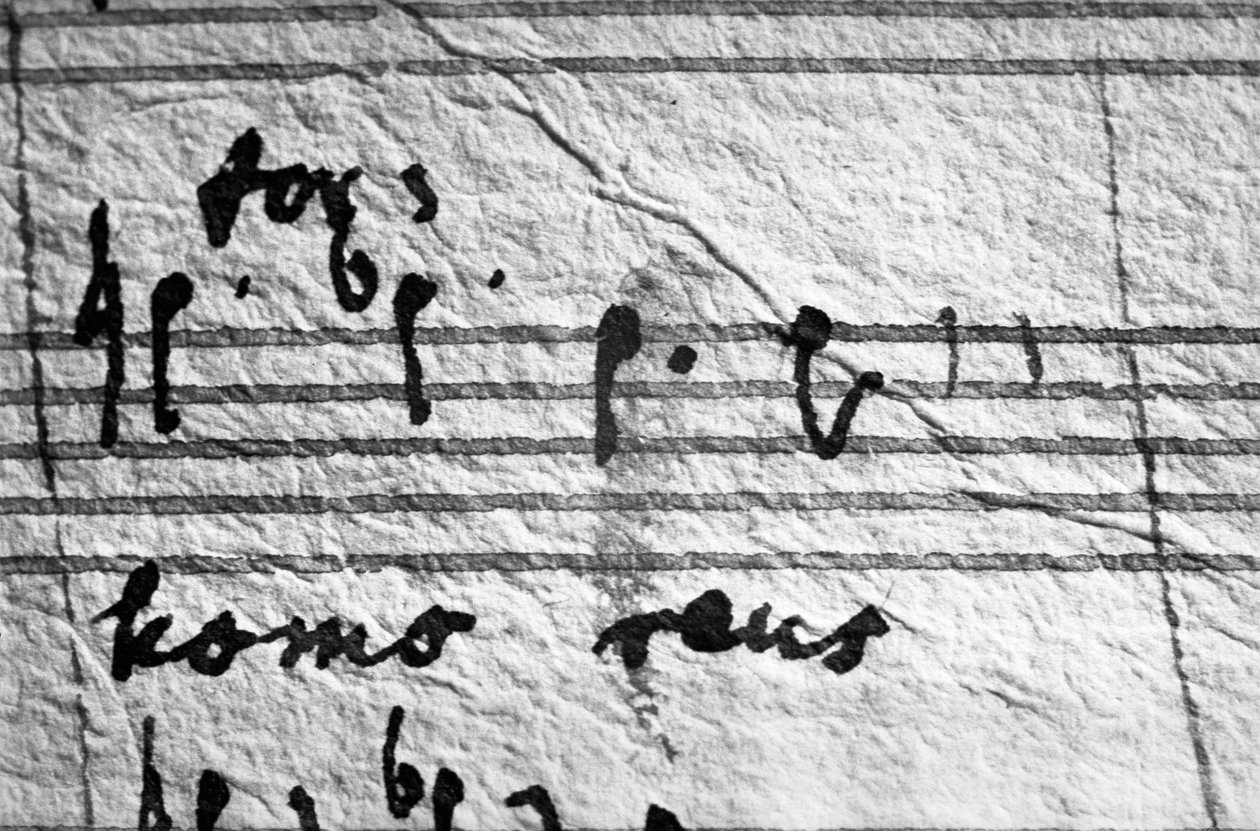 homo reus